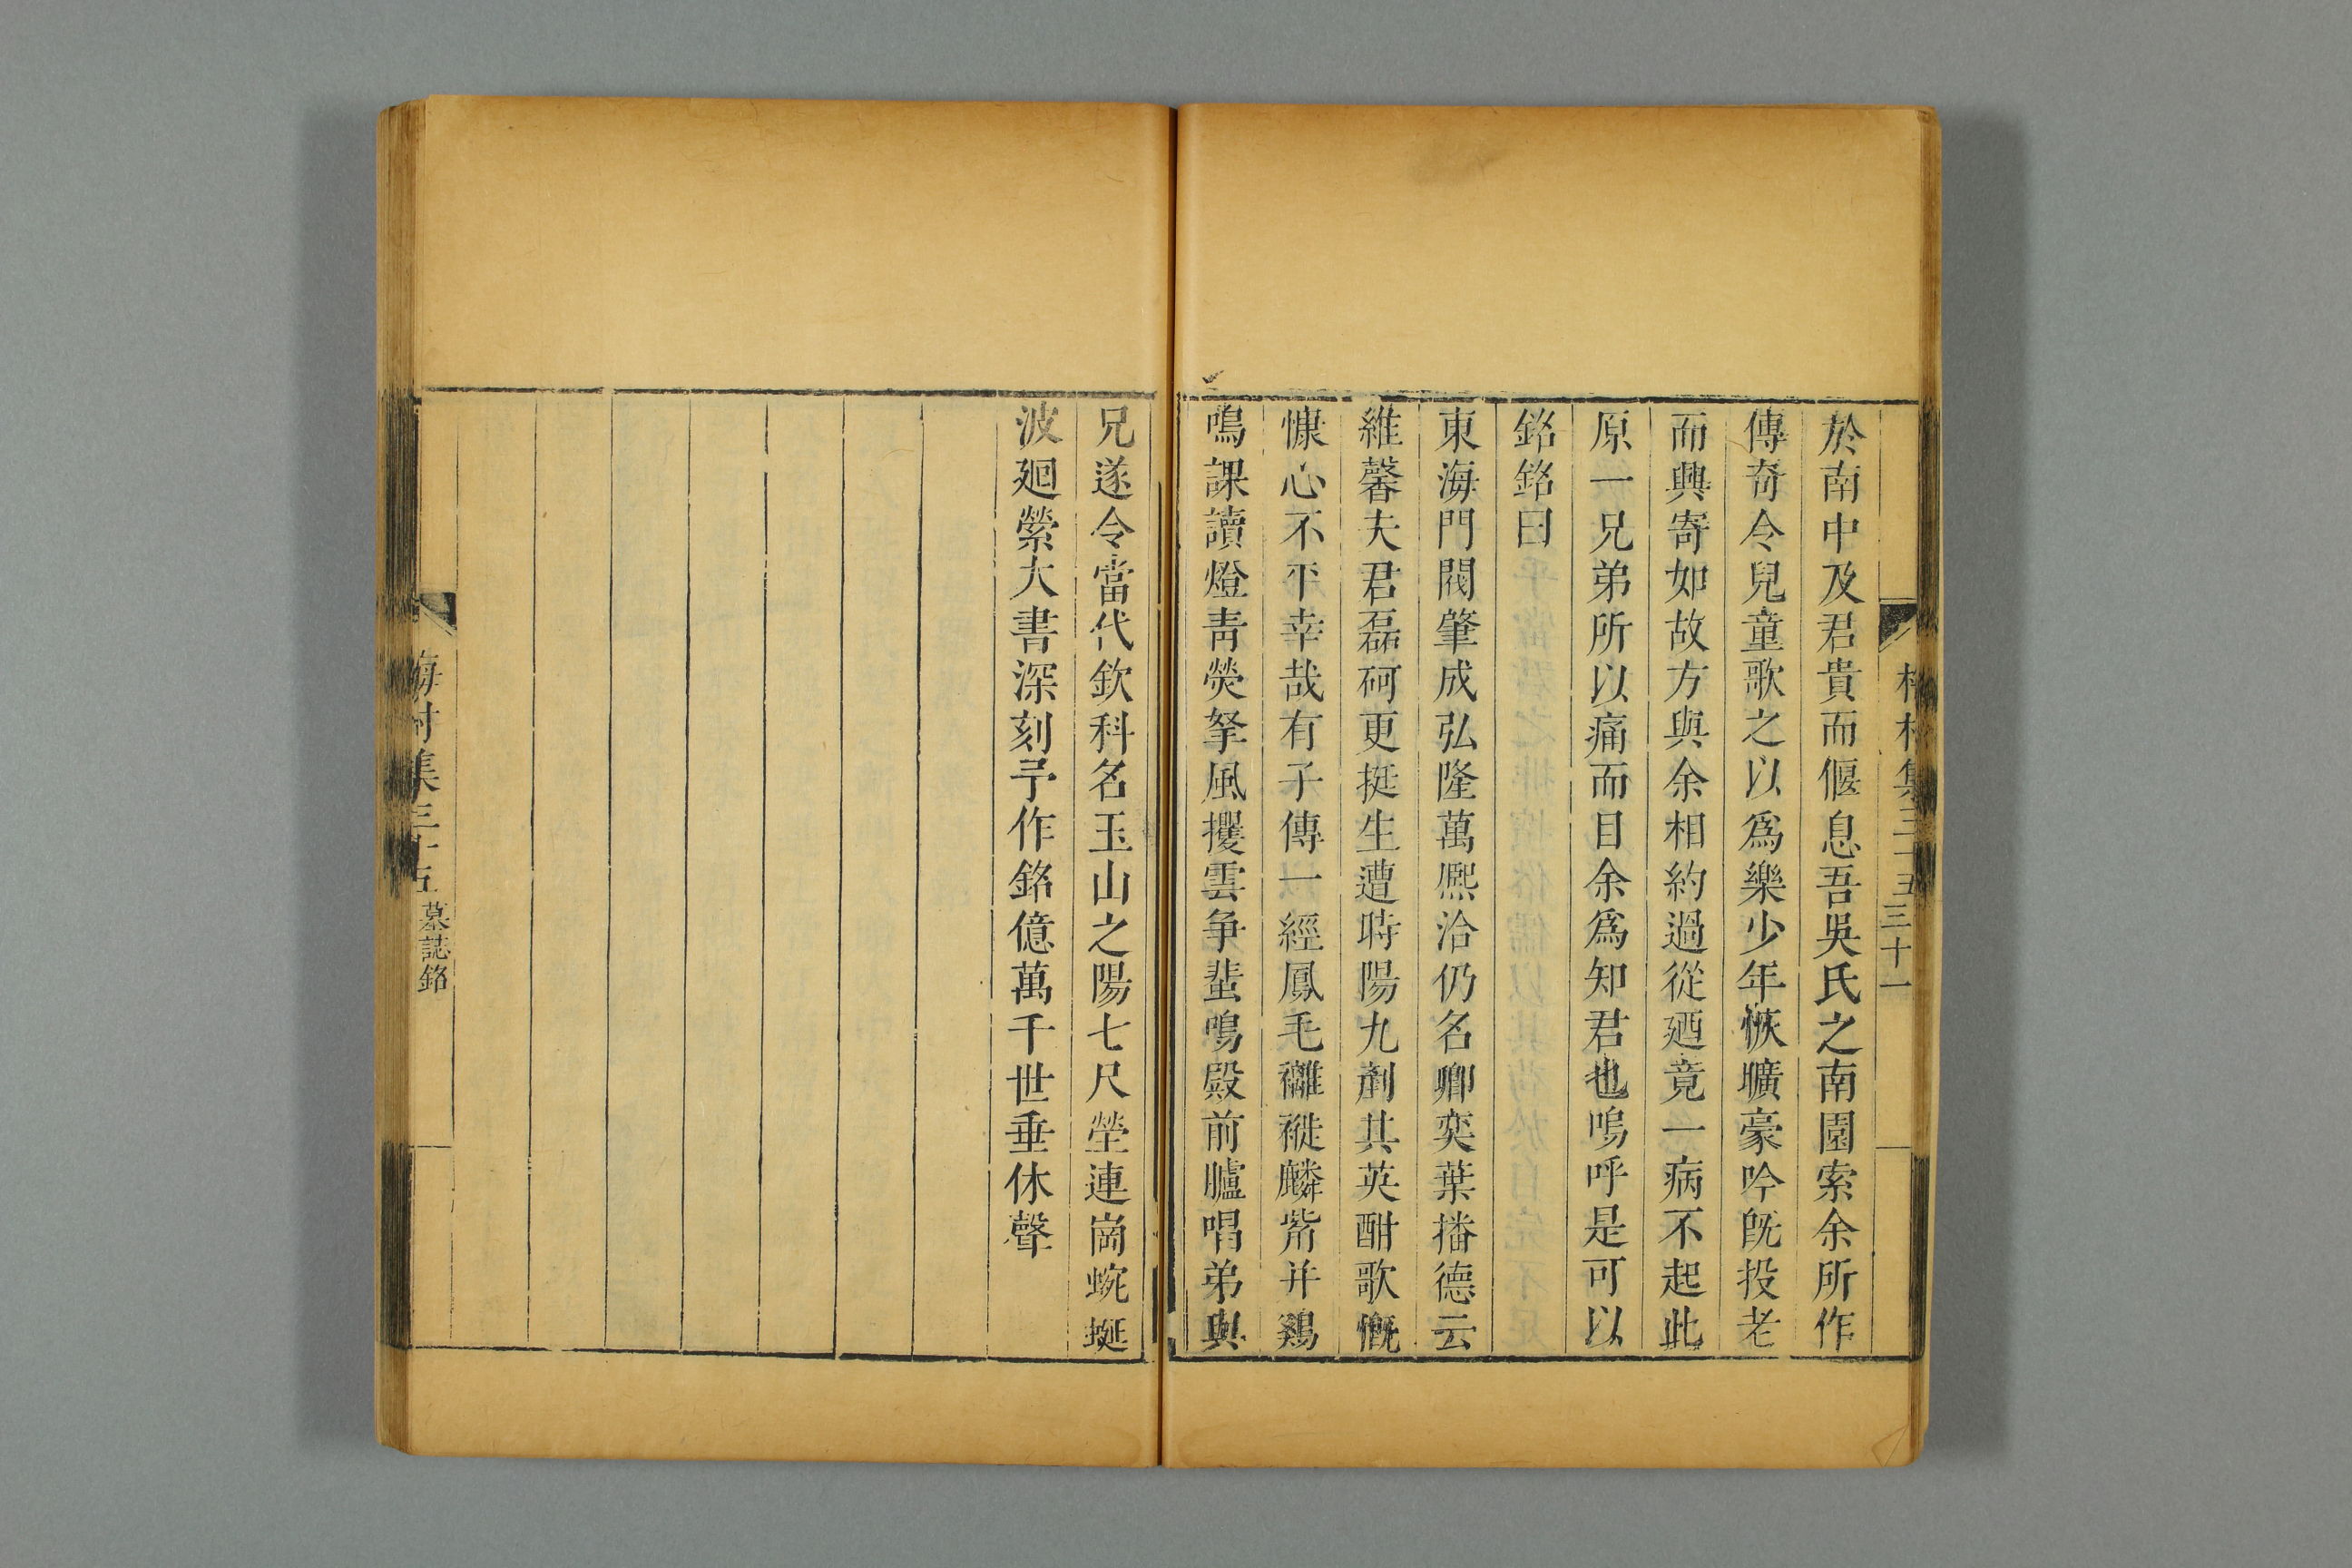 三十一
於南中及君貴而偃息吾吳氏之南園索余所作
傳奇令兒童歌之以爲樂少年恢曠豪吟旣投老
而興寄如故方與余相約過從廼竟一病不起此
原一兄弟所以痛而目余爲知君也嗚呼是可以
銘銘曰
東海門閥肇成弘隆萬熈洽仍名卿奕葉播德云
維馨夫君磊砢更挺生遭時陽九剷其英酣歌慨
慷心不平幸哉有子傳一經鳳毛襹褷麟觜并鷄
鳴課讀燈青熒拏風攫雲争蜚鳴殿前臚唱弟與
兄遂令當代欽科名玉山之陽七尺塋連崗蜿蜒
波廻縈大書深刻予作銘億萬千世垂休聲
梅村集三十五 墓誌銘